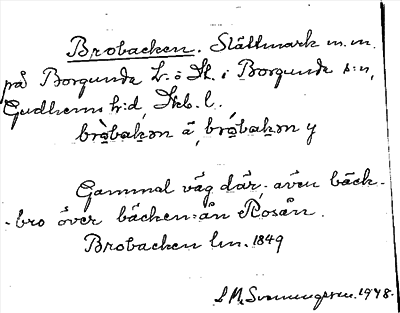 Brobacken. Slåttmark m.m.
på Borgunda L. o St. i Borgunda s:n,
Gudhems h:d, Skb. l.
bròbakən ä, bróbakən y
Gammal väg där, även bäck-
-bro över bäcken: ån Rosån.
Brobacken lm. 1849
S A. Svenungsson. 1948.